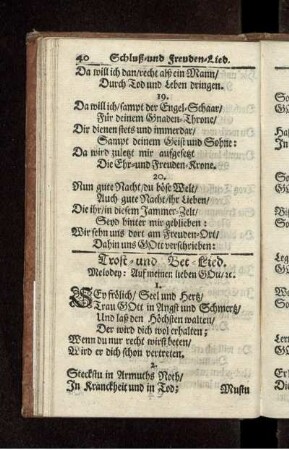 40 Schluß-und Freuden-Lied.
Da will ich dan/recht alß ein Mann/
Durch Tod und Leben dringen.
19.
Da will ich/sampt der Engel-Schaar/
Für deinem Gnaden-Throne/
Dir dienen stets und immerdar/
Sampt deinem Geist und Sohne:
Da wird zuletzt mir auffgesetzt
Die Ehr-und Freuden-Krone.
20.
Nun gute Nacht/du böse Welt/
Auch gute Nacht/ihr Lieben/
Die ihr/in diesem Jammer-Zelt/
Seyd hinter mir geblieben:
Wir sehn uns dort am Freuden-Ort/
Dahin uns GOtt verschrieben:
Trost- und Bet-Lied.
Melodey: Auf meinen lieben GOtt/ꝛc.
1.
SEy frölich/ Seel und Hertz/
Trau GOtt in Angst und Schmertz/
Und laß den Höchsten walten/
Der wird dich wol erhalten;
Wenn du nur recht wirst beten/
Wird er dich schon vertreten.
2.
Steckstu in Armuths Noth/
In Kranckheit und in Tod;
Mustu